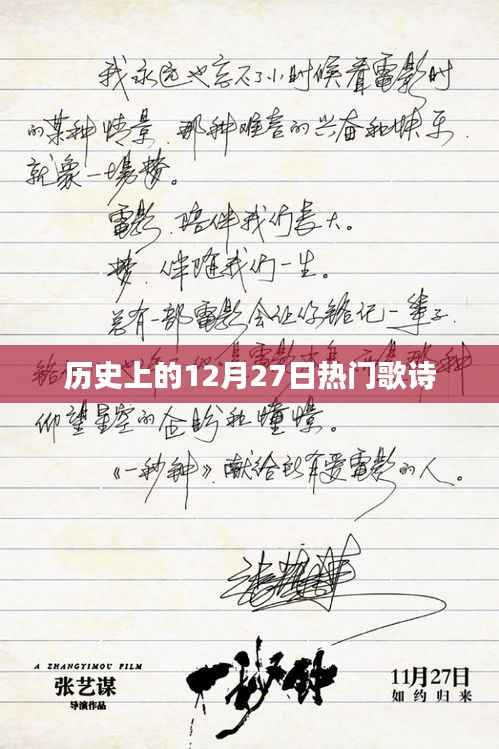 我永远也忘不了小时候看電影时
的某种情景。那种难言的兴奋和快乐，
就象一場梦。
電影，陪伴我们長大。
梦，伴随我们一生。
总有一部電影会让你铭记一辈子，
历史上的12月27日热门歌诗
仰望星空的企盼和憧憬。
《一秒钟》，献给所有爱電影的人。
张艺谋
A ZHANGYIMOU FILM
张艺谋
导演作品
一秒钟
11月27日
如约归来